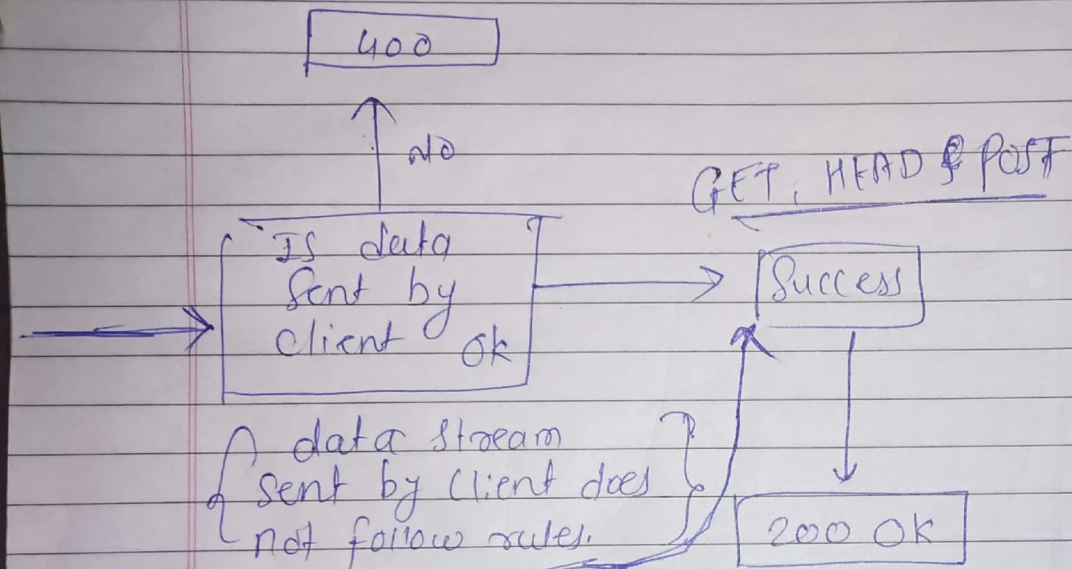 400
NO
GET, HEAD & POST
Is data
sent by
client ok
Success
data stream
sent by client does
not follow rules.
200 OK